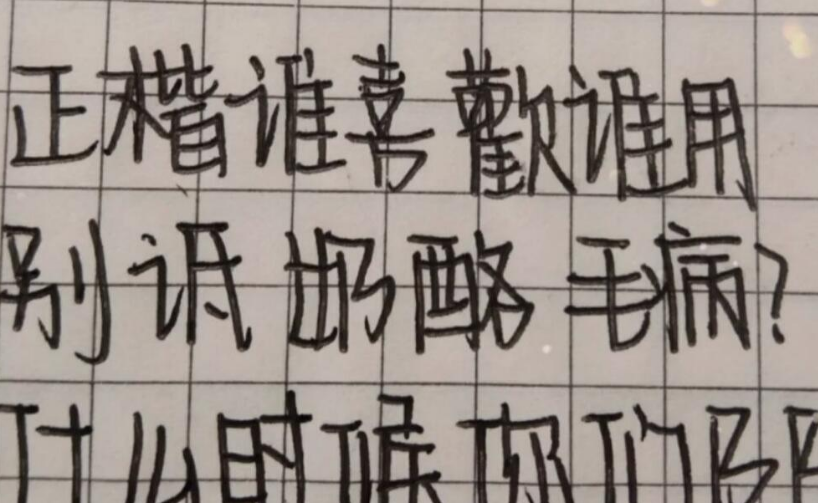 正楷谁喜歡谁用
别讽奶酪毛病?
什么时候你们